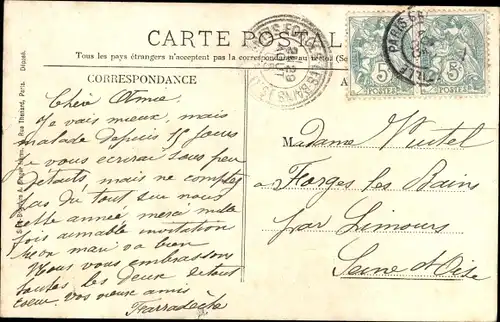 CARTE POSTALE
Tous les pays étrangers n'acceptent pas la correspondance au recto
CORRESPONDANCE
Chère Amie
Je vais mieux, mais
malade depuis 15 jours
Je vous écrirai sous peu
détails mais ne comptez
pas du tout sur nous
cette année, merci mille
fois aimable invitation
mon mari va bien
Nous vous embrassons
toutes les deux de tout
coeur. Vos vieux amis
Madame
à Forges les Bains
par Limours
Seine & Oise
5 5
POSTES POSTES
PARIS
Rue Thénard, Paris. Déposé.